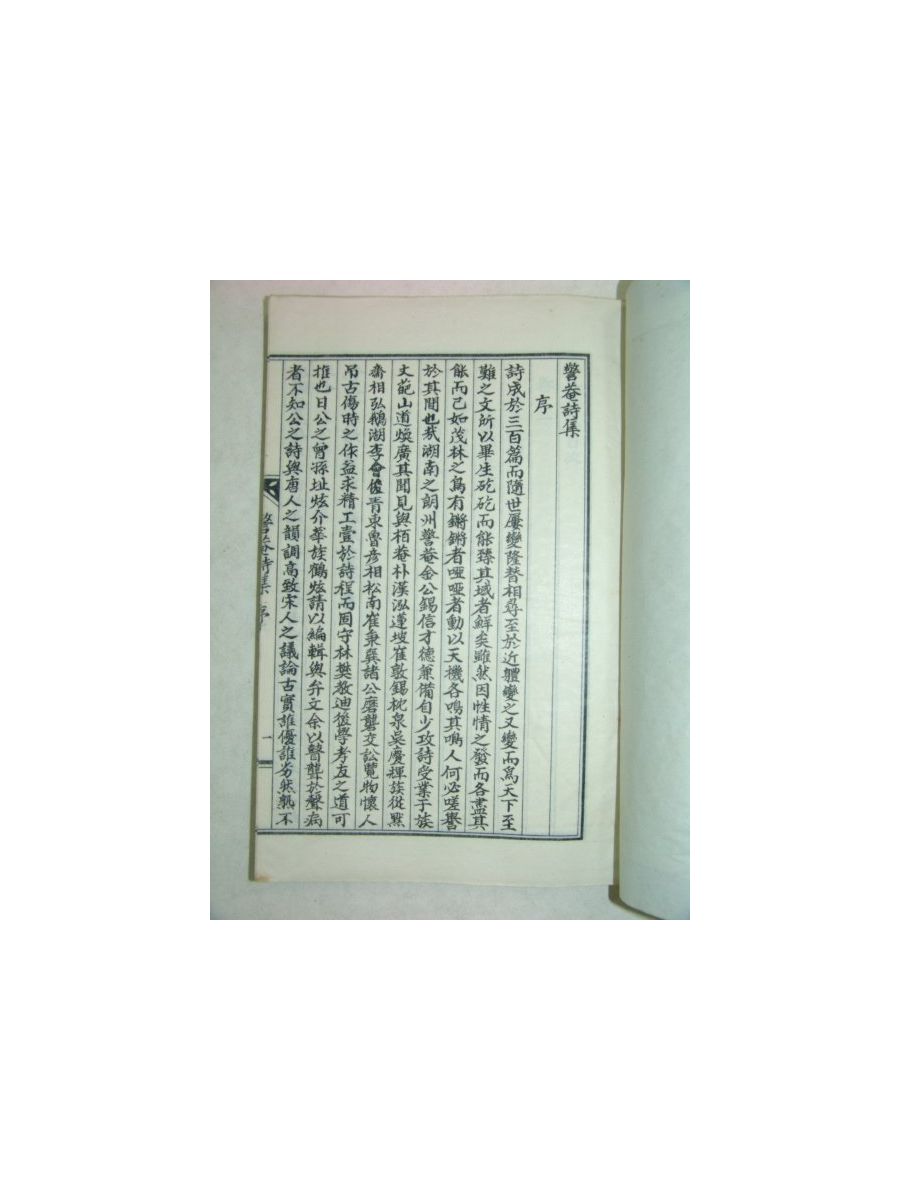 警菴詩集
序
詩成於三百篇而隨世屢變隆替相尋至於近體變之又變而爲天下至
難之文所以畢生矻矻而能臻其域者鮮矣雖然因性情之發而各盡其
能而已如茂林之鳥有鏘鏘者啞啞者動以天機各鳴其鳴人何必嗟譽
於其間也哉湖南之朗州警菴金公錫信才德兼備自少攻詩受業于族
丈葩山道煥廣其聞見與栢菴朴漢泓蓮坡崔敦錫枕泉吳慶輝族從默
齋相弘鵝湖李會俊青東魯彦相松南崔秉巽諸公磨礱交訟覽物懷人
吊古傷時之作益求精工壹於詩程而固守林樊教迪後學孝友之道可
推也日公之曾孫址炫介葊族鶴炫請以編輯與弁文余以瞽聾於聲病
者不知公之詩與唐人之韻調高致宋人之議論古實誰優誰劣然孰不
警菴詩集 序 一